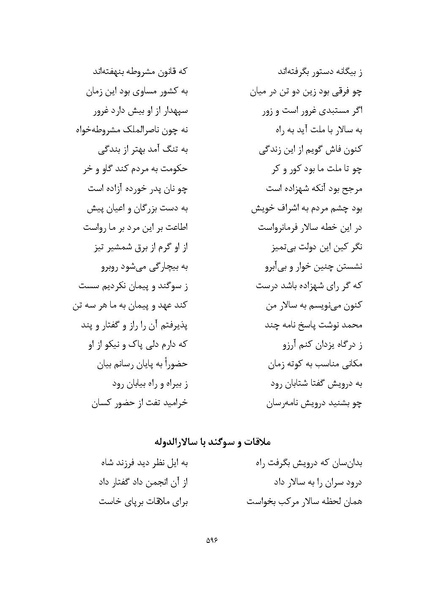 ز بیگانه دستور بگرفته‌اند که قانون مشروطه بنهفته‌اند
چو فرقی بود زین دو تن در میان به کشور مساوی بود این زمان
اگر مستبدی غرور است و زور سپهدار از او بیش دارد غرور
به سالار با ملت آید به راه نه چون ناصرالملک مشروطه‌خواه
کنون فاش گویم از این زندگی به تنگ آمد بهتر از بندگی
چو تا ملت ما بود کور و کر حکومت به مردم کند گاو و خر
مرجح بود آنکه شهزاده است چو نان پدر خورده آزاده است
بود چشم مردم به اشراف خویش به دست بزرگان و اعیان پیش
در این خطه سالار فرمانرواست اطاعت بر این مرد بر ما رواست
نگر کین این دولت بی‌تمیز از او گرم از برق شمشیر تیز
نشستن چنین خوار و بی‌آبرو به بیچارگی می‌شود روبرو
که گر رای شهزاده باشد درست ز سوگند و پیمان نکردیم سست
کنون می‌نویسم به سالار من کند عهد و پیمان به ما هر سه تن
محمد نوشت پاسخ نامه چند پذیرفتم آن را راز و گفتار و پند
ز درگاه یزدان کنم آرزو که دارم دلی پاک و نیکو از او
مکانی مناسب به کوته زمان حضوراً به پایان رسانم بیان
به درویش گفتا شتابان رود ز بیراه و راه بیابان رود
چو بشنید درویش نامه‌رسان خرامید تفت از حضور کسان
ملاقات و سوگند با سالارالدوله
بدان‌سان که درویش بگرفت راه به ایل نظر دید فرزند شاه
درود سران را به سالار داد از آن انجمن داد گفتار داد
همان لحظه سالار مرکب بخواست برای ملاقات برپای خاست
۵۹۶